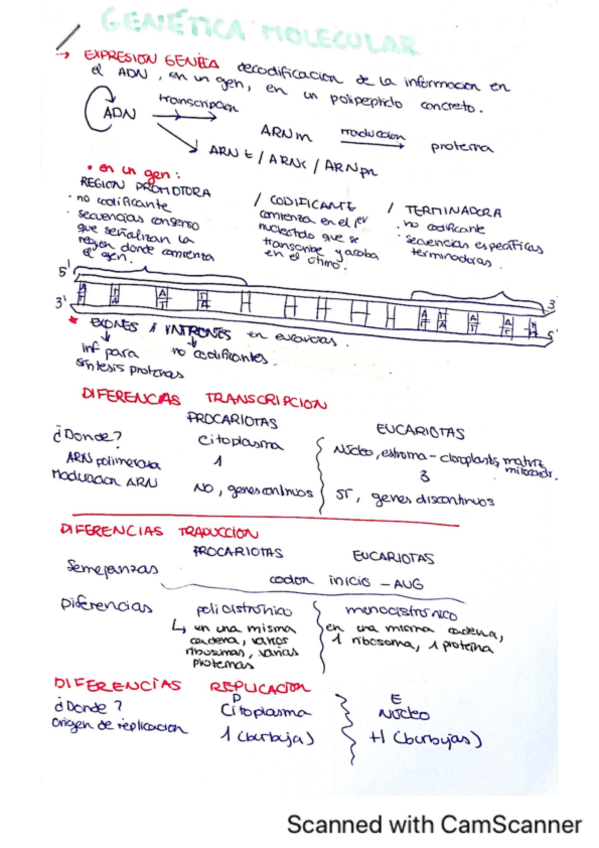 GENÉTICA MOLECULAR
→ EXPRESIÓN GÉNICA decodificacion de la informacion en
el ADN, en un gen, en un polipeptido concreto.
ADN transcripcion ARNm traduccion proteina
ARNt / ARNr / ARNpn
• en un gen:
REGION PROMOTORA / CODIFICANTE / TERMINADORA
· no codificante
· secuencias consenso
que señalizan la
region donde comienza
el gen.
comienza en el 1er
nucleotido que se
transcribe y acaba
en el último.
· no codificante
· secuencias específicas
terminadoras.
5' 3'
3' 5'
A T T A A T T A A T T A A T A T T A
* EXONES / INTRONES en eucariotas.
inf para no codificantes.
síntesis proteinas
DIFERENCIAS TRANSCRIPCION
PROCARIOTAS EUCARIOTAS
¿Donde? Citoplasma Núcleo, estroma - cloroplasts, matriz mitocondr.
ARN polimerasa 1 3
Maduracion ARN NO, genes continuos SÍ, genes discontinuos
DIFERENCIAS TRADUCCION
PROCARIOTAS EUCARIOTAS
Semejanzas codon inicio - AUG
Diferencias policistrónico monocistrónico
↳ en una misma
cadena, varios
ribosomas, varias
proteinas
en una misma cadena,
1 ribosoma, 1 proteína
DIFERENCIAS REPLICACION
P E
¿Donde? Citoplasma Núcleo
Origen de replicacion 1 (burbuja) +1 (burbujas)
Scanned with CamScanner